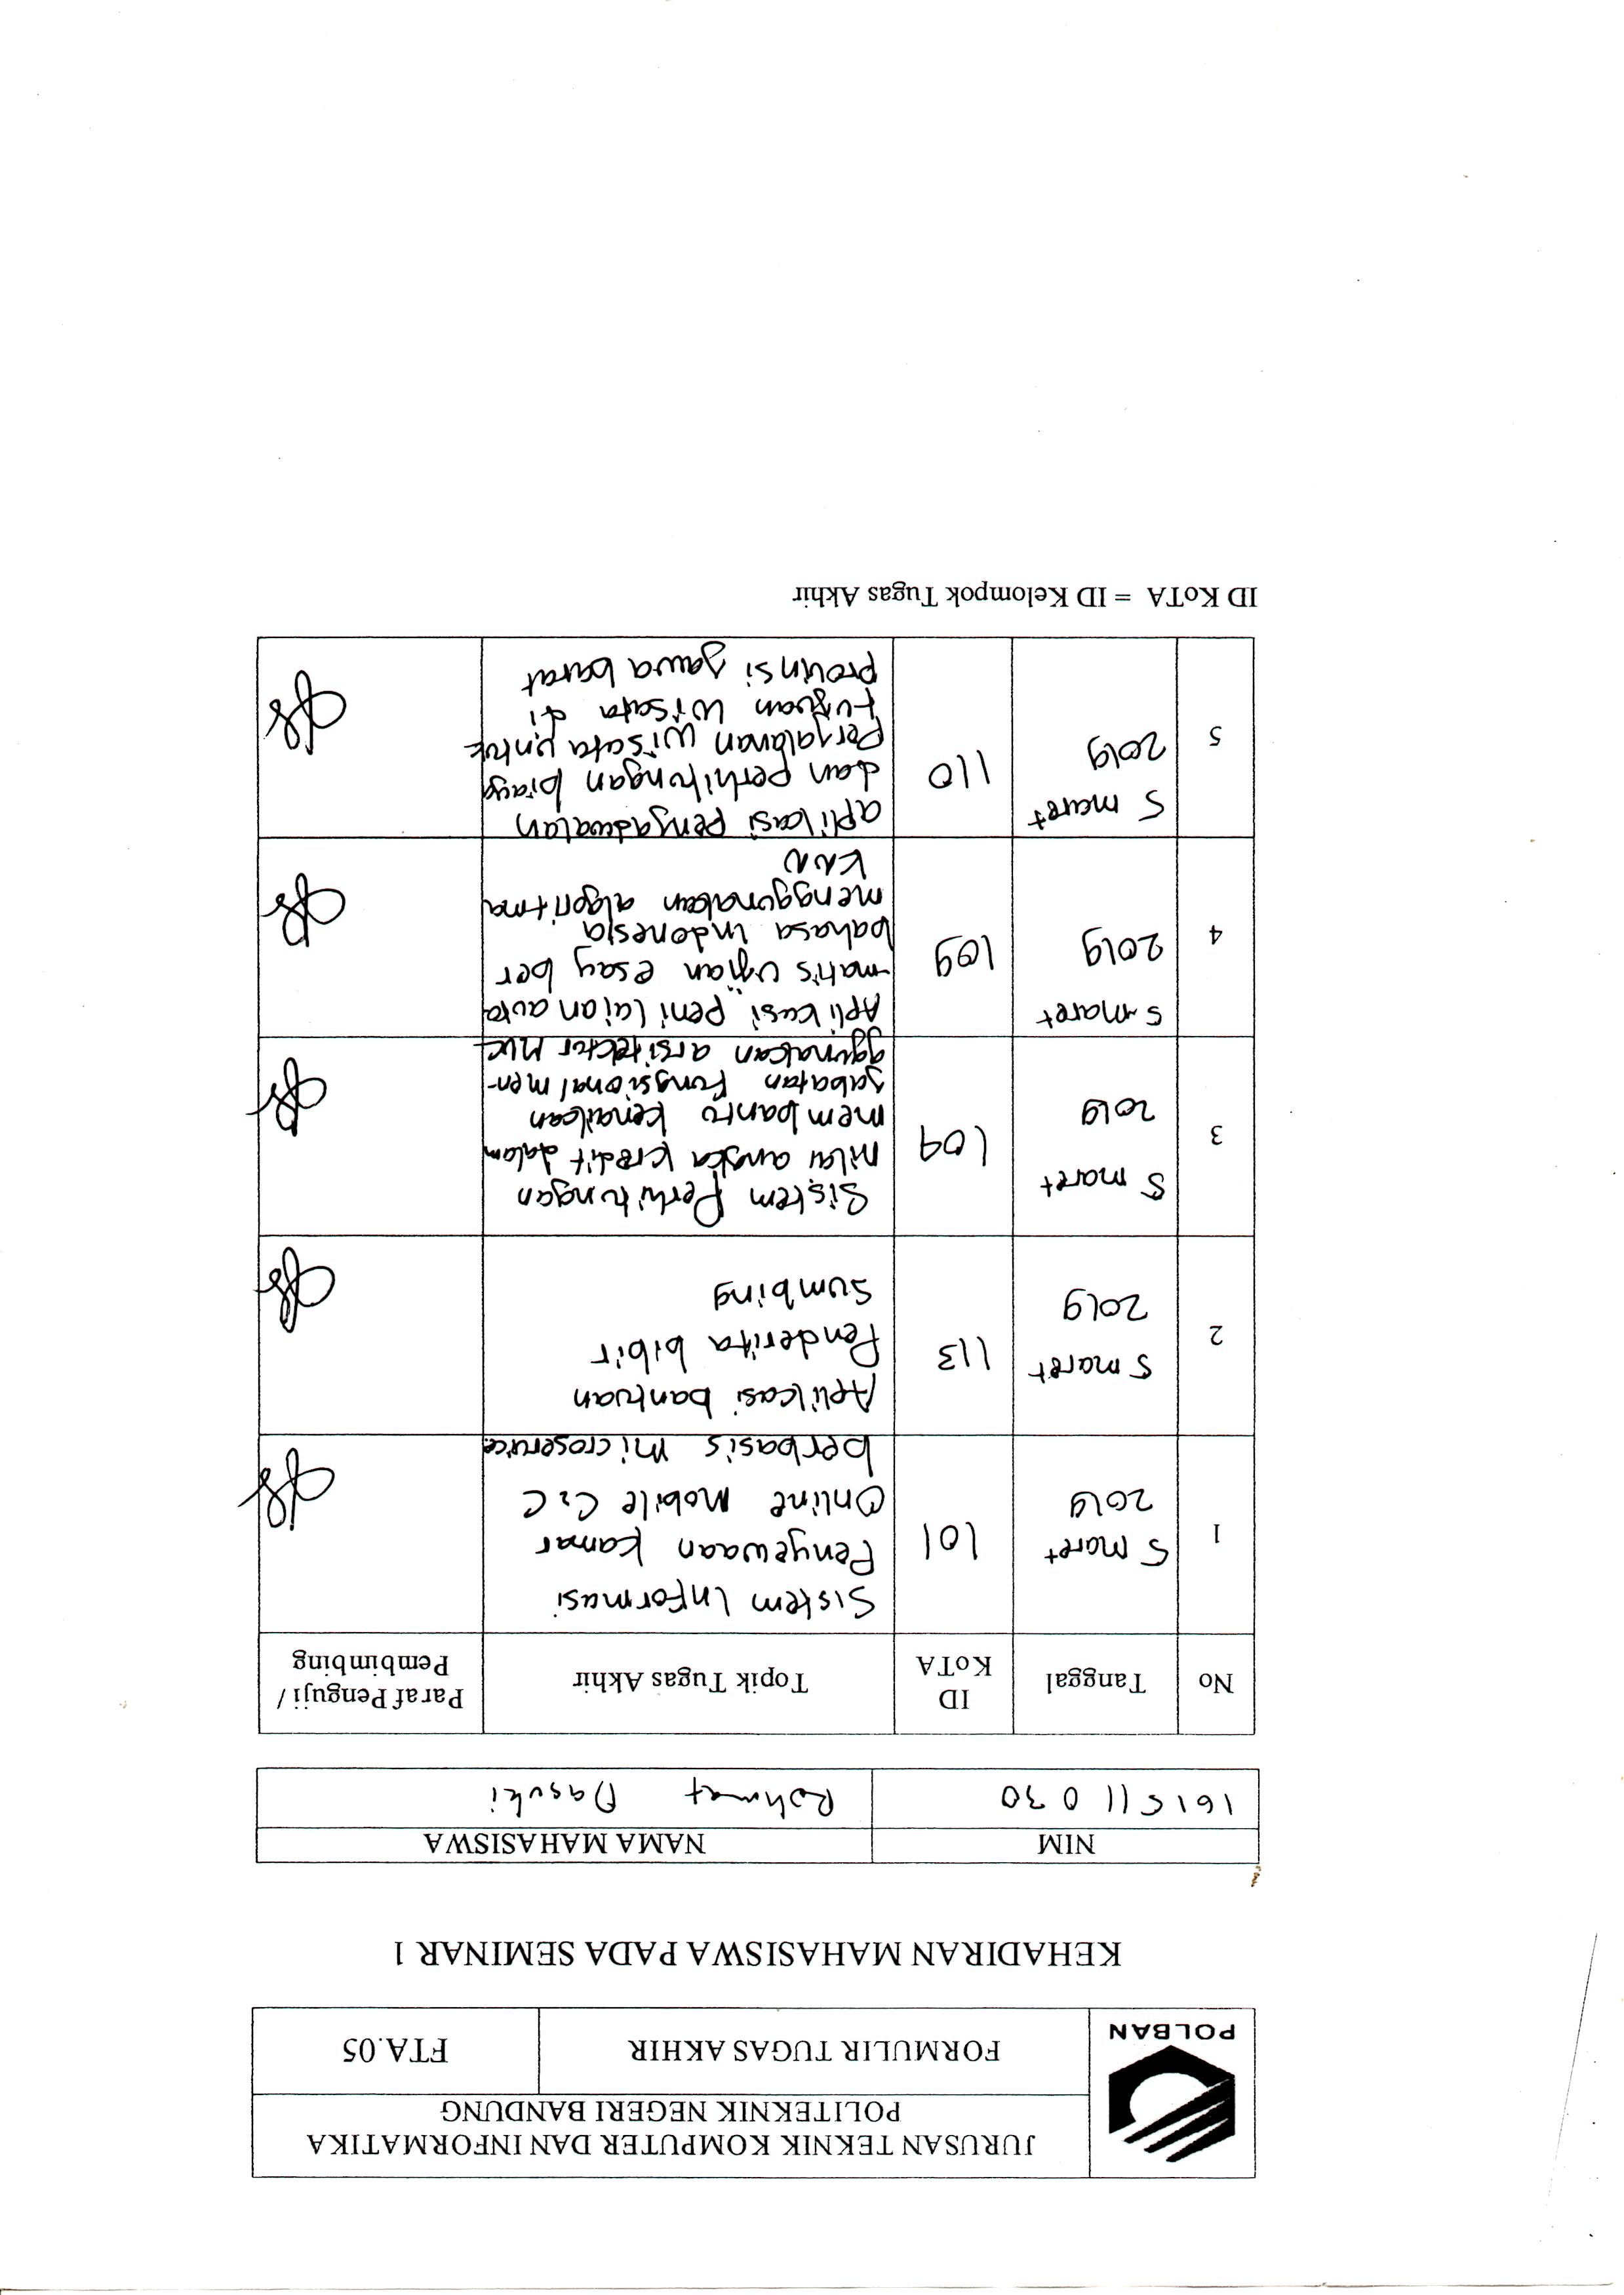 POLBAN
JURUSAN TEKNIK KOMPUTER DAN INFORMATIKA
POLITEKNIK NEGERI BANDUNG
FORMULIR TUGAS AKHIR
FTA.05
KEHADIRAN MAHASISWA PADA SEMINAR 1
NIM
NAMA MAHASISWA
161511030
Rohmat Dasuki
No
Tanggal
ID
KoTA
Topik Tugas Akhir
Paraf Penguji /
Pembimbing
1
5 maret
2019
101
Sistem Informasi
Penyewaan kamar
Online Mobile C2C
berbasis microservice
2
5 maret
2019
113
Aplikasi bantuan
Penderita bibir
Sumbing
3
5 maret
2019
109
Sistem Perhitungan
nilai angka kredit dalam
membantu kenaikan
jabatan fungsional men-
ggunakan arsitektur MVC
4
5 maret
2019
109
Aplikasi penilaian auto
-matis ujian esay ber
bahasa indonesia
menggunakan algoritma
KNN
5
5 maret
2019
110
aplikasi penjadwalan
dan perhitungan biaya
Perjalanan wisata untuk
tujuan wisata di
provinsi jawa barat
ID KoTA = ID Kelompok Tugas Akhir